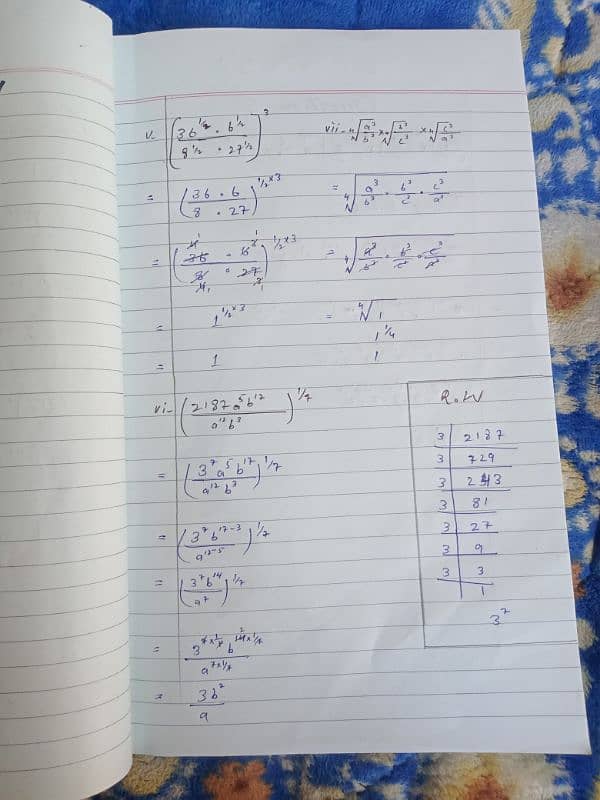 v. (36^½ · 6^½ / 8^½ · 27^½)^3
= (36 · 6 / 8 · 27)^½×3
= (36 · 6 / 8 · 27)^½×3
= 1^½×3
= 1
vii- ⁴√(a³/b³) × ⁴√(b³/c³) × ⁴√(c³/a³)
= ⁴√(a³/b³ · b³/c³ · c³/a³)
= ⁴√(a³/b³ · b³/c³ · c³/a³)
= ⁴√1
1^¼
1
vi- (2187 a^5 b^17 / a^12 b^3)^1/7
= (3^7 a^5 b^17 / a^12 b^3)^1/7
= (3^7 b^17-3 / a^12-5)^1/7
= (3^7 b^14 / a^7)^1/7
= 3^7×1/7 b^14×1/7 / a^7×1/7
= 3b² / a
R.W
3 | 2187
3 | 729
3 | 243
3 | 81
3 | 27
3 | 9
3 | 3
1
3^7